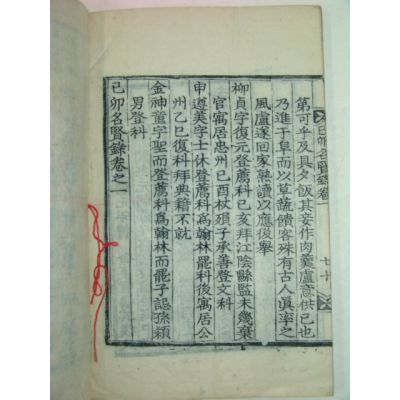 己卯名賢錄卷一 七十
第可乎及具夕飯其妾作肉羹盧意供已也
乃進于阜而以草蔬饋客殊有古人眞率之
風盧遂回家熟讀以應後擧
柳貞字復元登薦科己亥拜江陰縣監未幾棄
官寓居忠州己酉杖殞子承善登文科
申遵美字士休登薦科爲翰林罷科後寓居公
州乙巳復科拜典籍不就
金神童字聖而登薦科爲翰林而罷子諰孫潁
男登科
己卯名賢錄卷之一